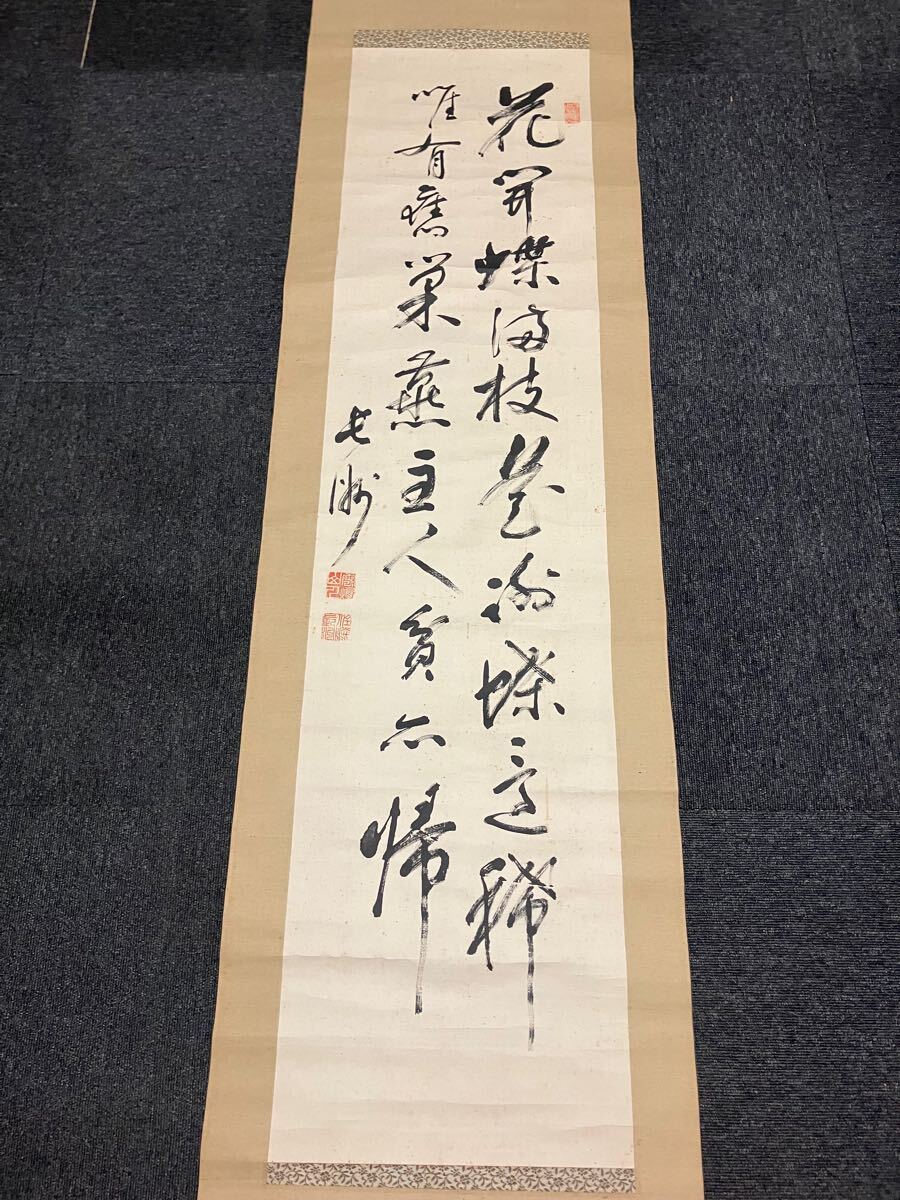 花開蝶滿枝花謝蝶還稀
唯有舊巢燕主人貧亦帰
洲